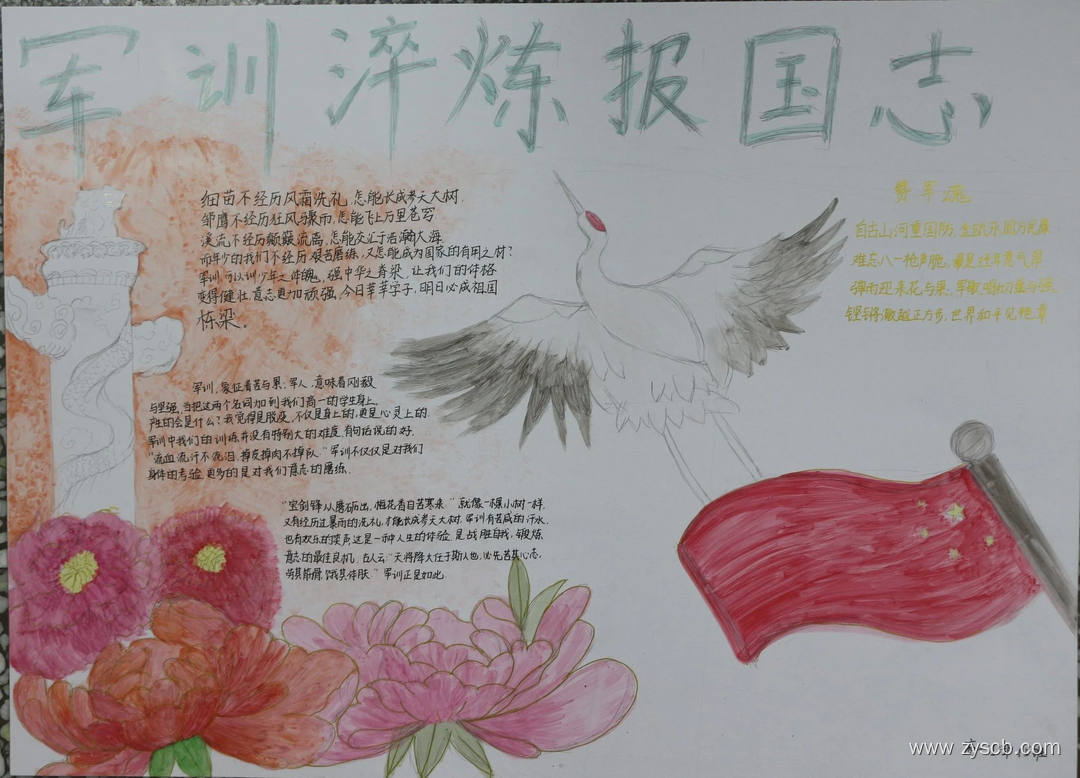 军训淬炼报国志
细苗不经历风霜洗礼,怎能长成参天大树,
邹鹰不经历狂风与暴雨,怎能飞上万里苍穹
溪流不经历颠簸流离,怎能交汇于浩瀚大海
而年少的我们不经历艰苦磨练,又怎能成为国家的有用之材?
军训可以训少年之体魄,强中华之脊梁,让我们的体格
变得健壮,意志更加顽强,今日莘莘学子,明日必成祖国
栋梁。
军训,象征着苦与累;军人,意味着刚毅
与坚强,当把这两个名词加到我们高一的学生身上,
产生的会是什么?我觉得是蜕变,不仅是身上的,更是心灵上的
军训中我们的训练并没有特别大的难度,有句话说的好,
“流血流汗不流泪,掉皮掉肉不掉队。”军训不仅仅是对我们
身体的考验,更多的是对我们意志的磨练。
“宝剑锋从磨砺出,梅花香自苦寒来”就像一棵小树一样,
又有经历过暴雨的洗礼,才能长成参天大树,军训有苦咸的汗水,
也有欢乐的笑声,这是一种人生的体验,是战胜自我,锻炼
意志的最佳良机,古人云:“天将降大任于斯人也,必先苦其心志,
劳其筋骨,饿其体肤。”军训正是如此
赞军魂
自古山河重国防,
难忘八一枪声脆,
军歌嘹亮
铿锵激越正方步,世界和平
www.zyscb.com